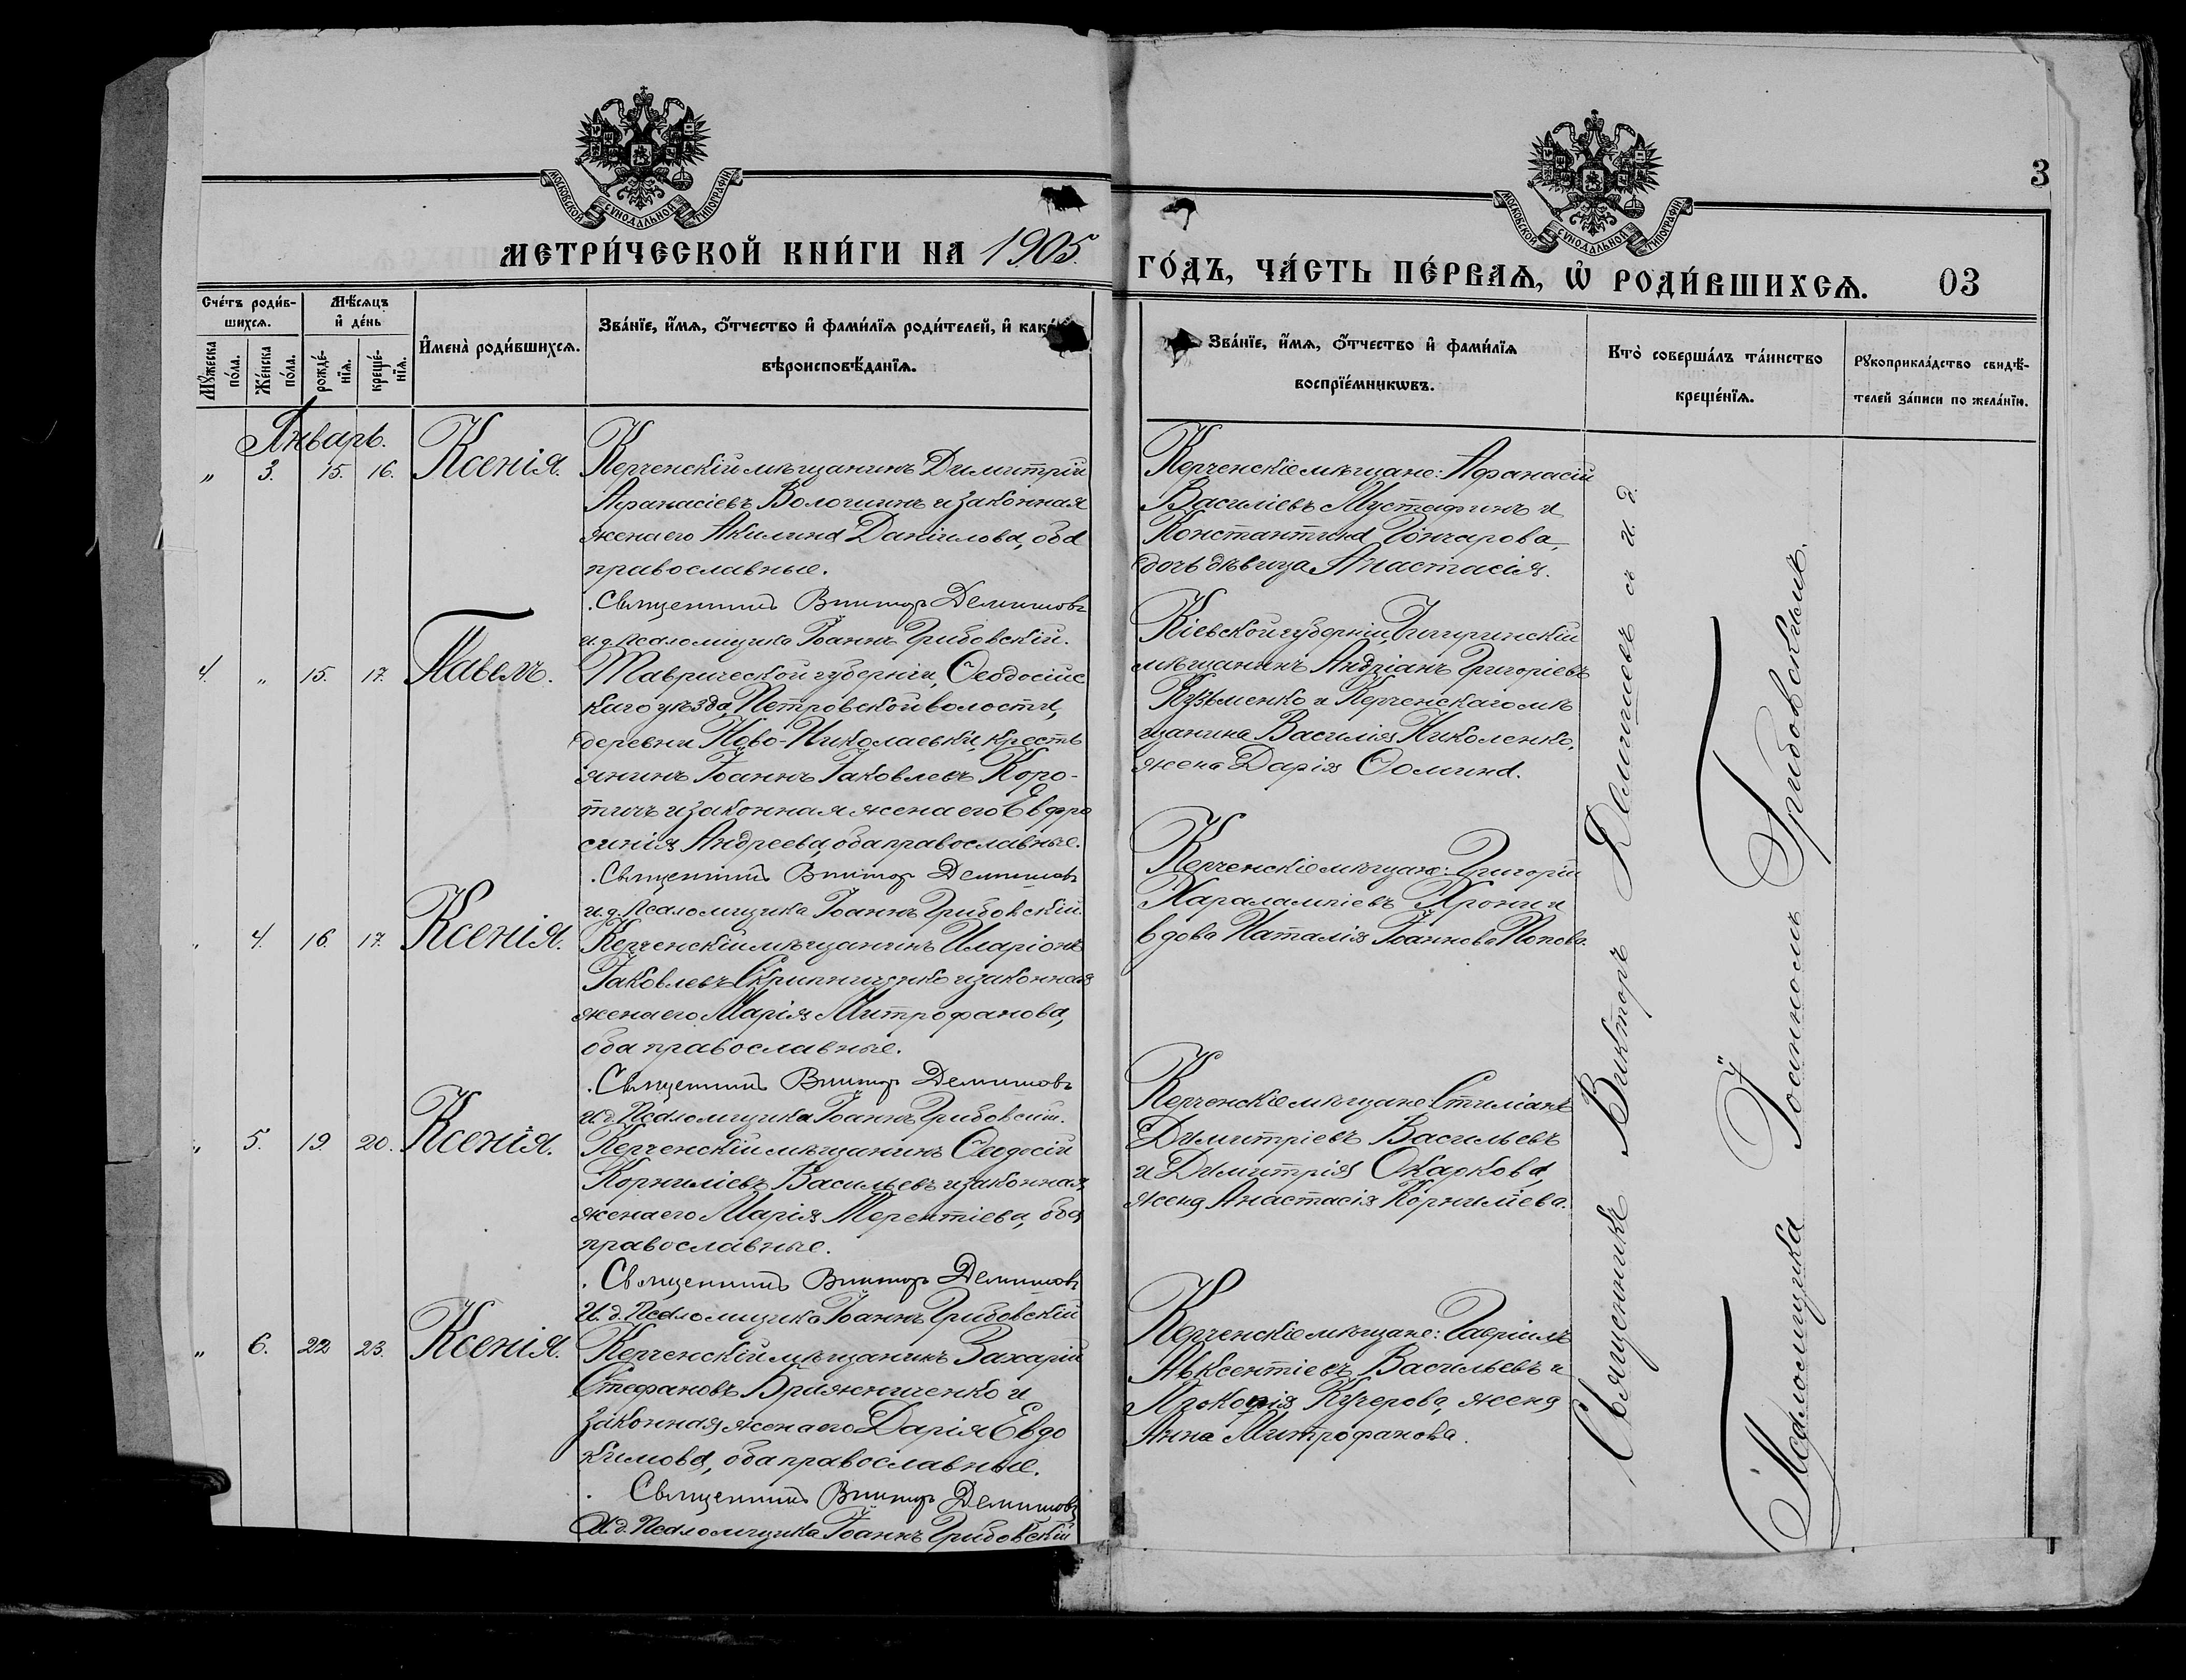 МОСКОВСКОЙ СѴНОДАЛЬНОЙ ТИПОГРАФІИ
МОСКОВСКОЙ СѴНОДАЛЬНОЙ ТИПОГРАФІИ
3
МЕТРИ́ЧЕСКОЙ КНИ́ГИ НА 1905.
ГО́ДЪ, ЧА́СТЬ ПЕ́РВАѦ, Ѽ РОДИ́ВШИХСѦ.
03
Сче́тъ роди́в-
шихсѧ.
Мѣ́сяцъ
и҆ де́нь
Мꙋ́жеска
по́ла.
Же́нска
по́ла.
рожде́-
нїѧ.
креще́-
нїѧ.
И҆мена̀ роди́вшихсѧ.
Зва́нїе, и҆́мѧ, ѻ҆́тчество и҆ фами́лїѧ роди́телей, и҆ како́
вѣроисповѣ́данїѧ.
Зва́нїе, и҆́мѧ, ѻ҆́тчество и҆ фами́лїѧ
воспрїе́мникѡвъ.
Кто̀ соверша́лъ та́инство
креще́нїѧ.
Рꙋкоприкла́дство свидѣ́-
телей за́писи по жела́нїю.
Январь.
„ 3. 15. 16. Ксенія.
Керченскій мѣщанинъ Димитрій
Афанасіевъ Волошинъ и законная
жена его Акилина Даніилова, оба
православные.
Священникъ Викторъ Демишовъ
и.д. псаломщика Іоаннъ Грибовскій.
Керченскіе мѣщане: Афанасій
Василіевъ Мустафинъ и
Константина Гончарова,
дочь дѣвица Анастасія.
4. „ 15. 17. Павелъ.
Таврической губерніи, Ѳеодосійс
каго уѣзда, Петровской волости,
деревни Ново-Николаевки, кресть
янинъ Іоаннъ Іаковлевъ Коро-
тичъ и законная жена его Евфро
синія Андреева, оба православные.
Священникъ Викторъ Демишовъ
и.д. псаломщика Іоаннъ Грибовскій.
Кіевской губерніи, Чигиринскій
мѣщанинъ Андріанъ Григоріевъ
Кузьменко и Керченскаго мѣ
щанина Василія Николенко,
жена Дарія Ѳомина.
„ 4. 16. 17. Ксенія.
Керченскій мѣщанинъ Иларіонъ
Іаковлевъ Скрипниченко и законная
жена его Марія Митрофанова,
оба православные.
Священникъ Викторъ Демишовъ
И.д. Псаломщика Іоаннъ Грибовскій.
Керченскіе мѣщане: Григорій
Харалампіевъ Хрони и
вдова Наталія Іоаннова Попова.
„ 5. 19. 20. Ксенія.
Керченскій мѣщанинъ Ѳеодосій
Корниліевъ Васильевъ и законная
жена его Марія Терентіева, оба
православные.
Священникъ Викторъ Демишовъ
И.д. Псаломщика Іоаннъ Грибовскій
Керченскіе мѣщане Стиліанъ
Димитріевъ Васильевъ
и Димитрія Ожаркова,
жена Анастасія Корниліева.
„ 6. 22 23. Ксенія.
Керченскій мѣщанинъ Захарій
Стефановъ Бряжниченко и
законная жена его Дарія Евдо
кимова, оба православные.
Священникъ Викторъ Демишовъ
И.д. Псаломщика Іоаннъ Грибовскій
Керченскіе мѣщане: Гавріилъ
Авксентіевъ Васильевъ и
Прокопія Кучерова, жена
Анна Митрофанова.
Священникъ Викторъ Демишевъ съ и. д.
Псаломщика Іоанномъ Грибовскимъ.